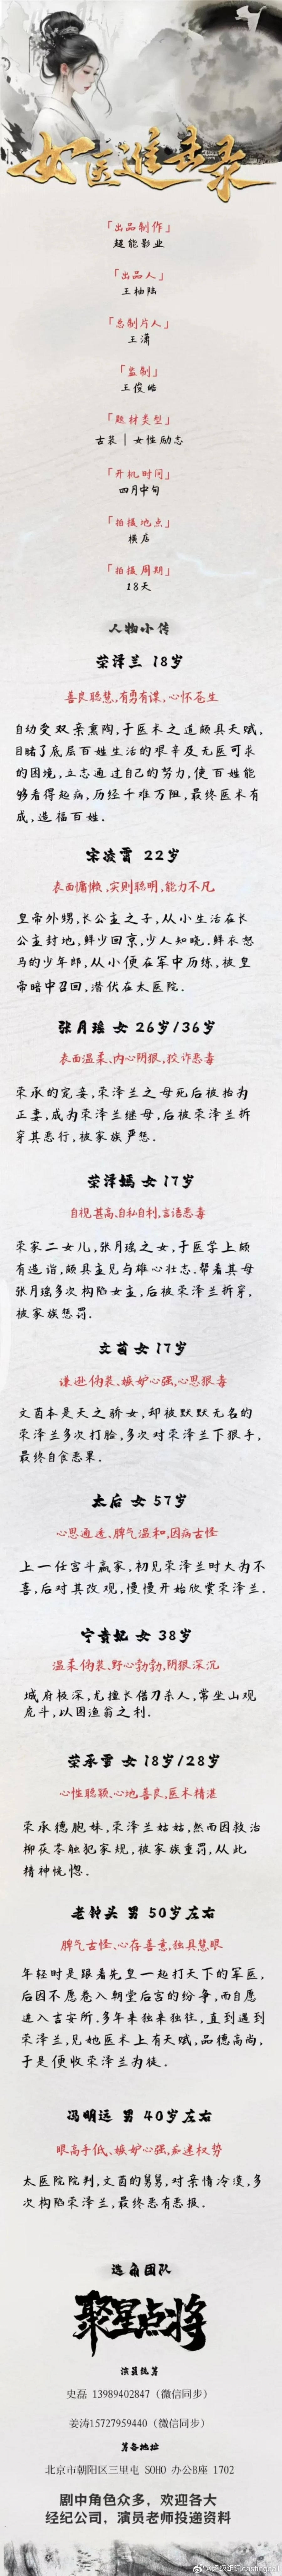 女医进击录
「出品制作」
超能影业
「出品人」
王柚陆
「总制片人」
王潇
「监制」
王俊皓
「题材类型」
古装 | 女性励志
「开机时间」
四月中旬
「拍摄地点」
横店
「拍摄周期」
18天
人物小传
荣泽兰 18岁
善良聪慧,有勇有谋,心怀苍生
自幼受双亲熏陶,于医术之道颇具天赋,
目睹了底层百姓生活的艰辛及无医可求
的困境,立志通过自己的努力,使百姓能
够看得起病,历经千难万阻,最终医术有
成,造福百姓.
宋凌霄 22岁
表面慵懒,实则聪明,能力不凡
皇帝外甥,长公主之子,从小生活在长
公主封地,鲜少回京,少人知晓.鲜衣怒
马的少年郎,从小便在军中历练,被皇
帝暗中召回,潜伏在太医院.
张月瑶 女 26岁/36岁
表面温柔、内心阴狠,狡诈恶毒
荣承的宠妾,荣泽兰之母死后被抬为
正妻,成为荣泽兰继母,后被荣泽兰拆
穿其恶行,被家族严惩.
荣泽嫣 女 17岁
自视甚高、自私自利,言语恶毒
荣家二女儿,张月瑶之女,于医学上颇
有造诣,颇具主见与雄心壮志.帮着其母
张月瑶多次构陷女主,后被荣泽兰拆穿,
被家族惩罚.
文茵 女 17岁
谦逊伪装、嫉妒心强,心思狠毒
文茵本是天之骄女,却被默默无名的
荣泽兰多次打脸,多次对荣泽兰下狠手,
最终自食恶果.
太后 女 57岁
心思通透、脾气温和,因病古怪
上一任宫斗赢家,初见荣泽兰时大为不
喜,后对其改观,慢慢开始欣赏荣泽兰.
宁贵妃 女 38岁
温柔伪装、野心勃勃,阴狠深沉
城府极深,尤擅长借刀杀人,常坐山观
虎斗,以图渔翁之利.
荣承雪 女 18岁/28岁
心性聪颖、心地善良,医术精湛
荣承德胞妹,荣泽兰姑姑,然而因救治
柳茯苓触犯家规,被家族重罚,从此
精神恍惚.
老钟头 男 50岁左右
脾气古怪、心存善意,独具慧眼
年轻时是跟着先皇一起打天下的军医,
后因不愿卷入朝堂后宫的纷争,而自愿
进入吉安所.多年来独来独往,直到遇到
荣泽兰,见她医术上有天赋,品德高尚,
于是便收荣泽兰为徒.
冯明远 男 40岁左右
眼高手低、嫉妒心强,迷恋权势
太医院院判,文茵的舅舅,对亲情冷漠,多
次构陷荣泽兰,最终恶有恶报.
选角团队
聚星点将
演员统筹
史磊 13989402847（微信同步）
姜涛15727959440（微信同步）
筹备地址
北京市朝阳区三里屯 SOHO 办公B座 1702
剧中角色众多，欢迎各大
经纪公司，演员老师投递资料